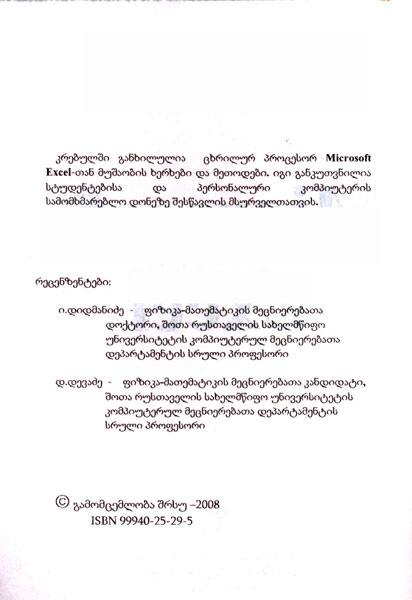 კრებულში განხილულია ცხრილურ პროცესორ Microsoft
Excel-თან მუშაობის ხერხები და მეთოდები. იგი განკუთვნილია
სტუდენტებისა და პერსონალური კომპიუტერის
სამომხმარებლო დონეზე შესწავლის მსურველთათვის.
რეცენზენტები:
ი.დიდმანიძე - ფიზიკა-მათემატიკის მეცნიერებათა
დოქტორი, შოთა რუსთაველის სახელმწიფო
უნივერსიტეტის კომპიუტერულ მეცნიერებათა
დეპარტამენტის სრული პროფესორი
დ.დევაძე - ფიზიკა-მათემატიკის მეცნიერებათა კანდიდატი,
შოთა რუსთაველის სახელმწიფო უნივერსიტეტის
კომპიუტერულ მეცნიერებათა დეპარტამენტის
სრული პროფესორი
© გამომცემლობა შრსუ –2008
ISBN 99940-25-29-5